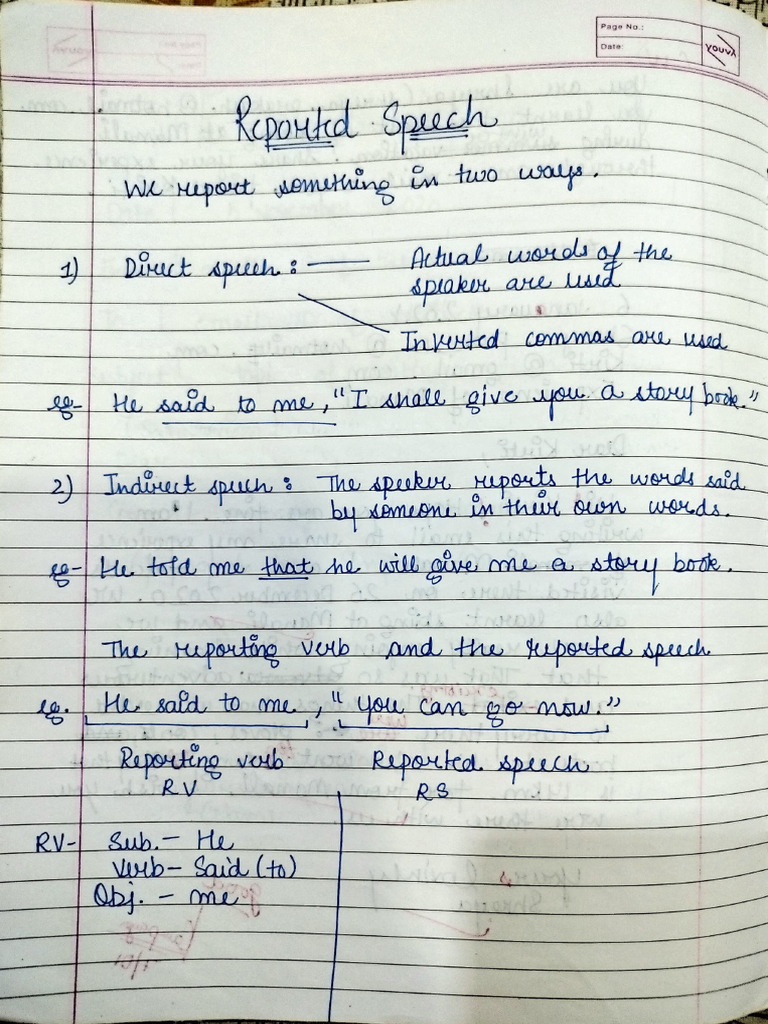 Page No.:
Date:
youva
Reported Speech
We report something in two ways.
1) Direct speech : — Actual words of the
speaker are used
Inverted commas are used
eg- He said to me, "I shall give you a story book."
2) Indirect speech : The speeker reports the words said
by someone in their own words.
eg- He told me that he will give me a story book.
The reporting verb and the reported speech
eg. He said to me, "You can go now."
Reporting verb Reported speech
RV RS
RV- Sub. - He
Verb - Said (to)
Obj. - me